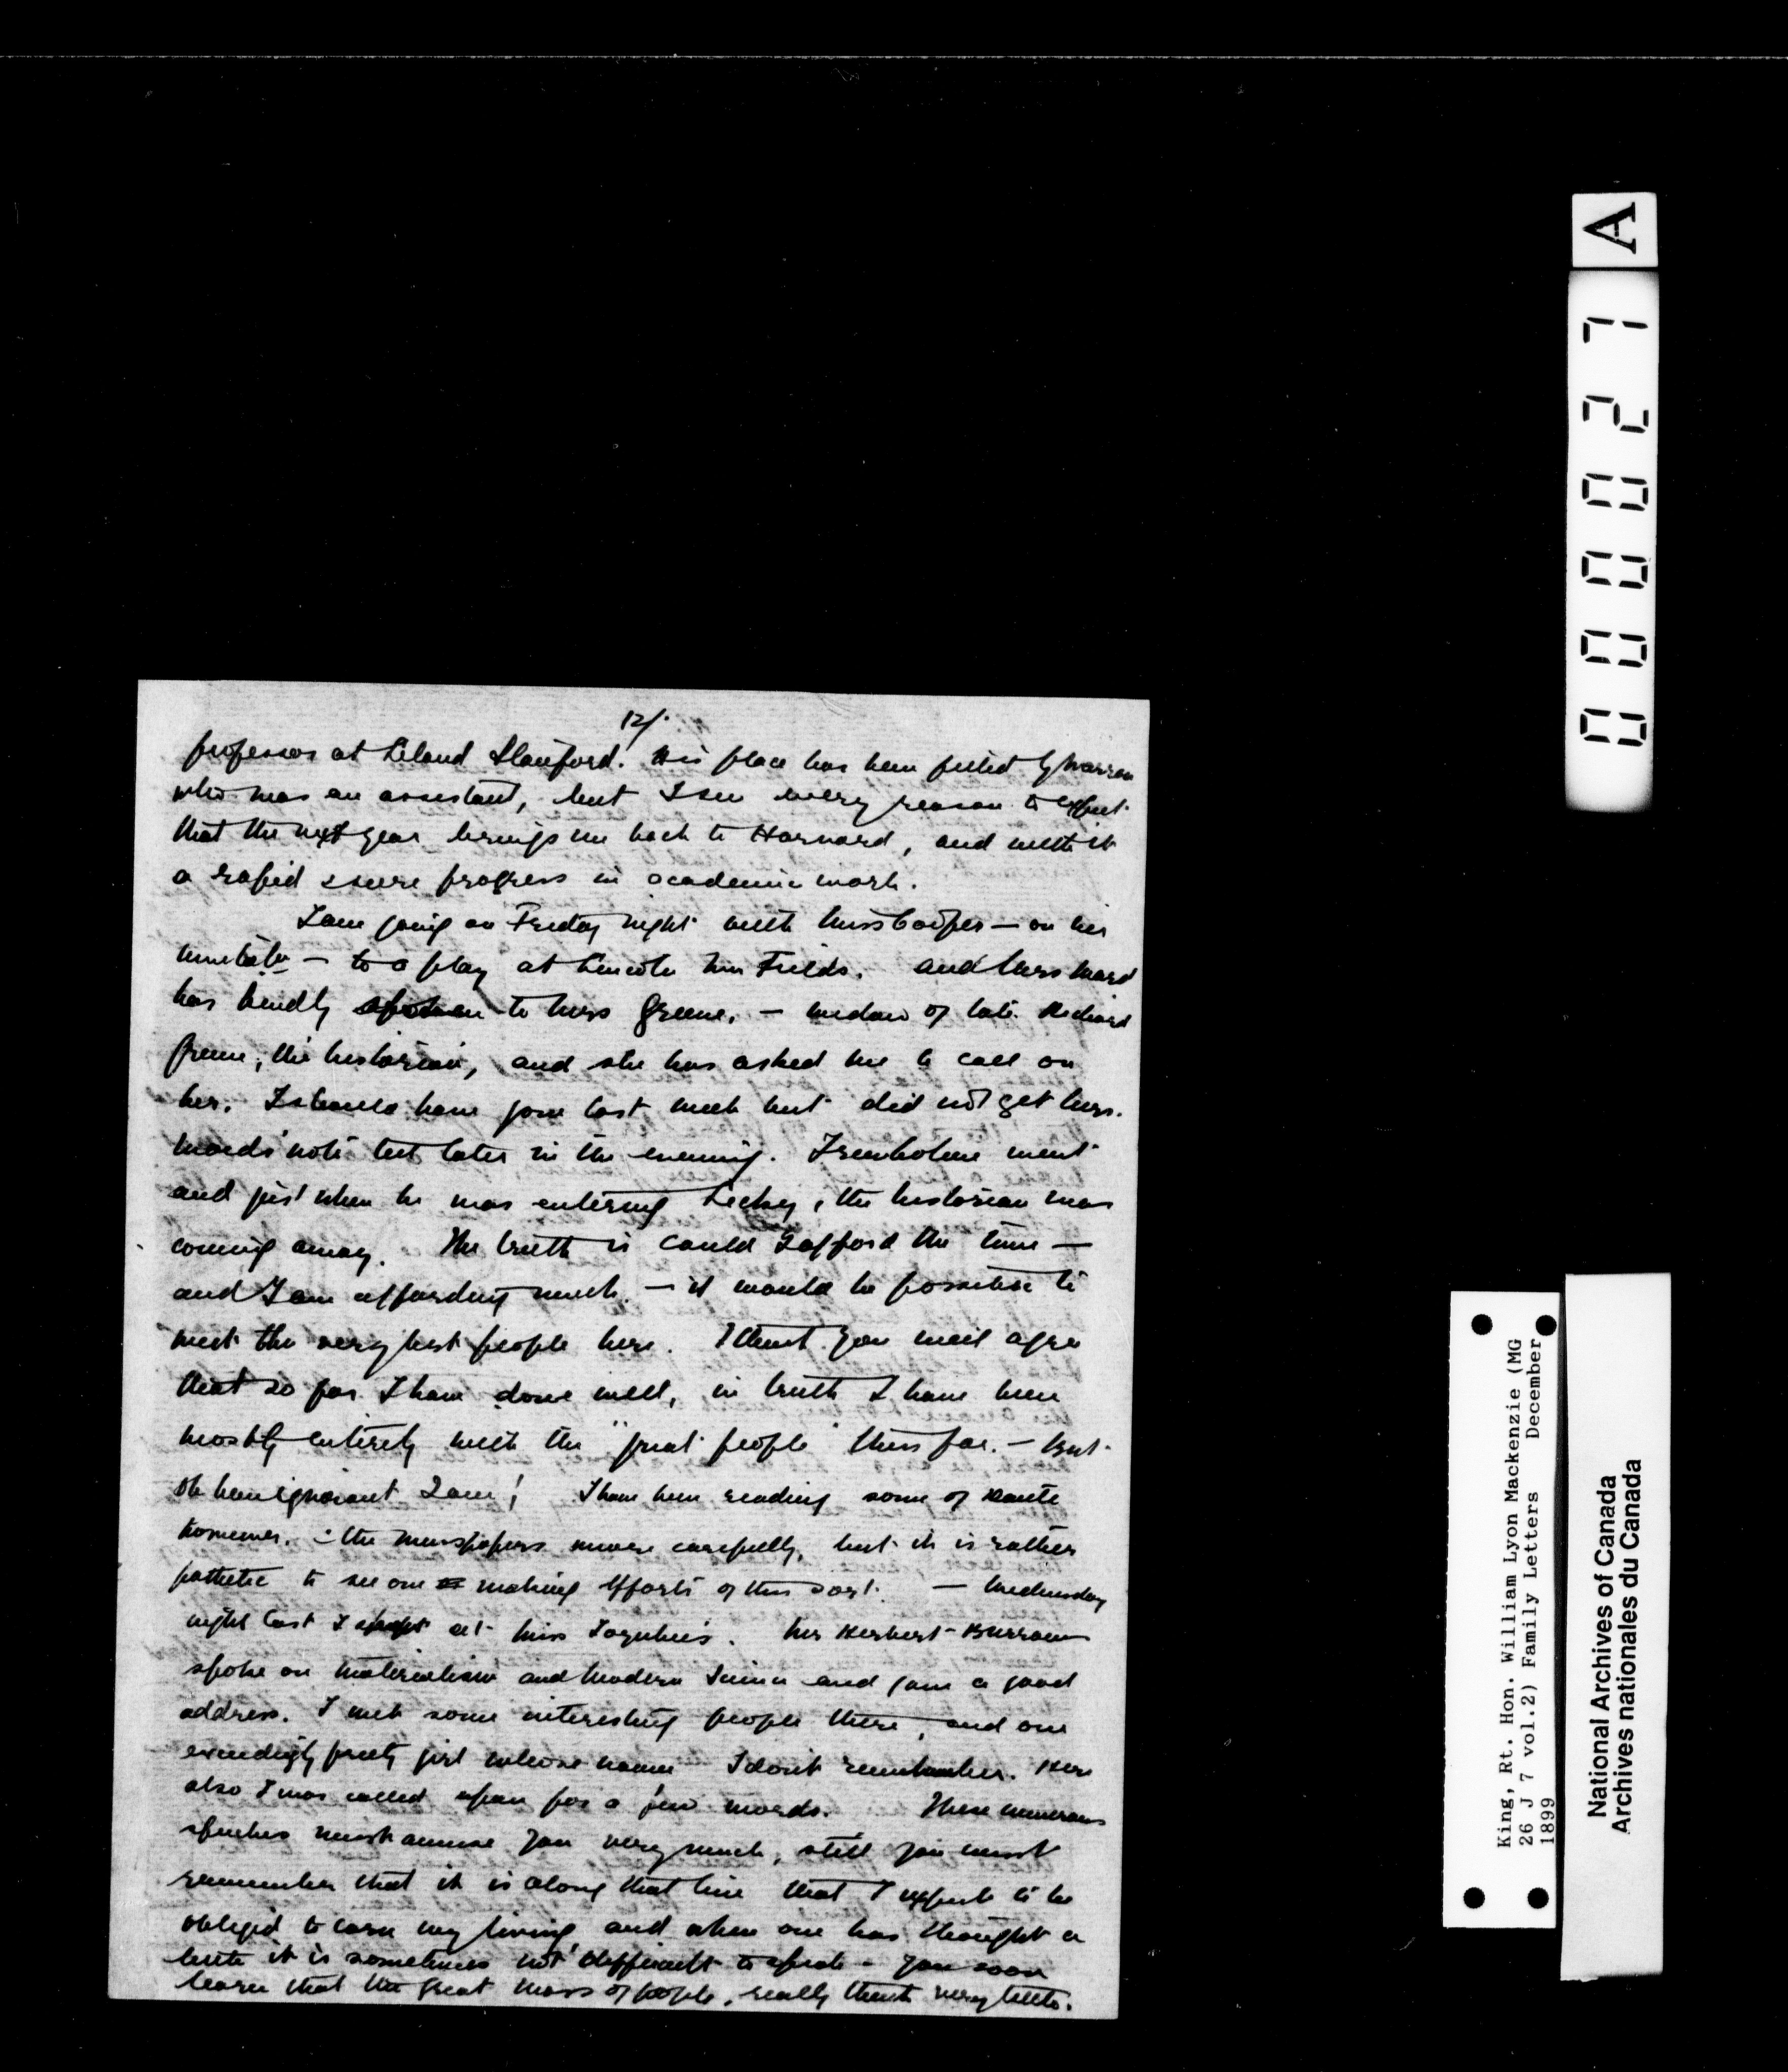 12/.
professor at Leland Stanford. His place has been filled by Warren
who was an assistant, but I see every reason to expect
that the next year brings me back to Harvard, and with it
a rapid & sure progress in academic work.
I am going on Friday night with Miss Cooper — on her
invitatn — to a play at Lincoln Inn Fields. and Mrs Ward
has kindly spoken to Mrs Greene, — widow of late Richard
Greene, the historian, and she has asked me to call on
her. I should have gone last week but did not get Mrs.
Wards' note till later in the evening. Trenholme went
and just when he was entering Lecky, the historian was
coming away. The truth is could I afford the time —
and I am affording much — it would be possible to
meet the very best people here. I think you will agree
that so far I have done well, in truth I have been
mostly entirely with the "great people" thus far. — But
Oh how ignorant I am! I have been reading some of Dante
Homer, & the newspapers more carefully, but it is rather
pathetic to see one making efforts of this sort. — Wednesday
night last I spent at Miss Toynbee's. Mr Herbert Burrows
spoke on Materialism and Modern Science and gave a good
address. I met some interesting people there, and one
exceedingly pretty girl whose name I don't remember. Here
also I was called upon for a few words. These numerous
speeches must amuse you very much, still you must
remember that it is along that line that I expect to be
obliged to earn my living, and when one has thought a
little it is sometimes not difficult to speak. You soon
learn that the great mass of people, really think very little.
A
000027
King, Rt. Hon. William Lyon Mackenzie (MG
26 J 7 vol.2) Family Letters December
1899
National Archives of Canada
Archives nationales du Canada